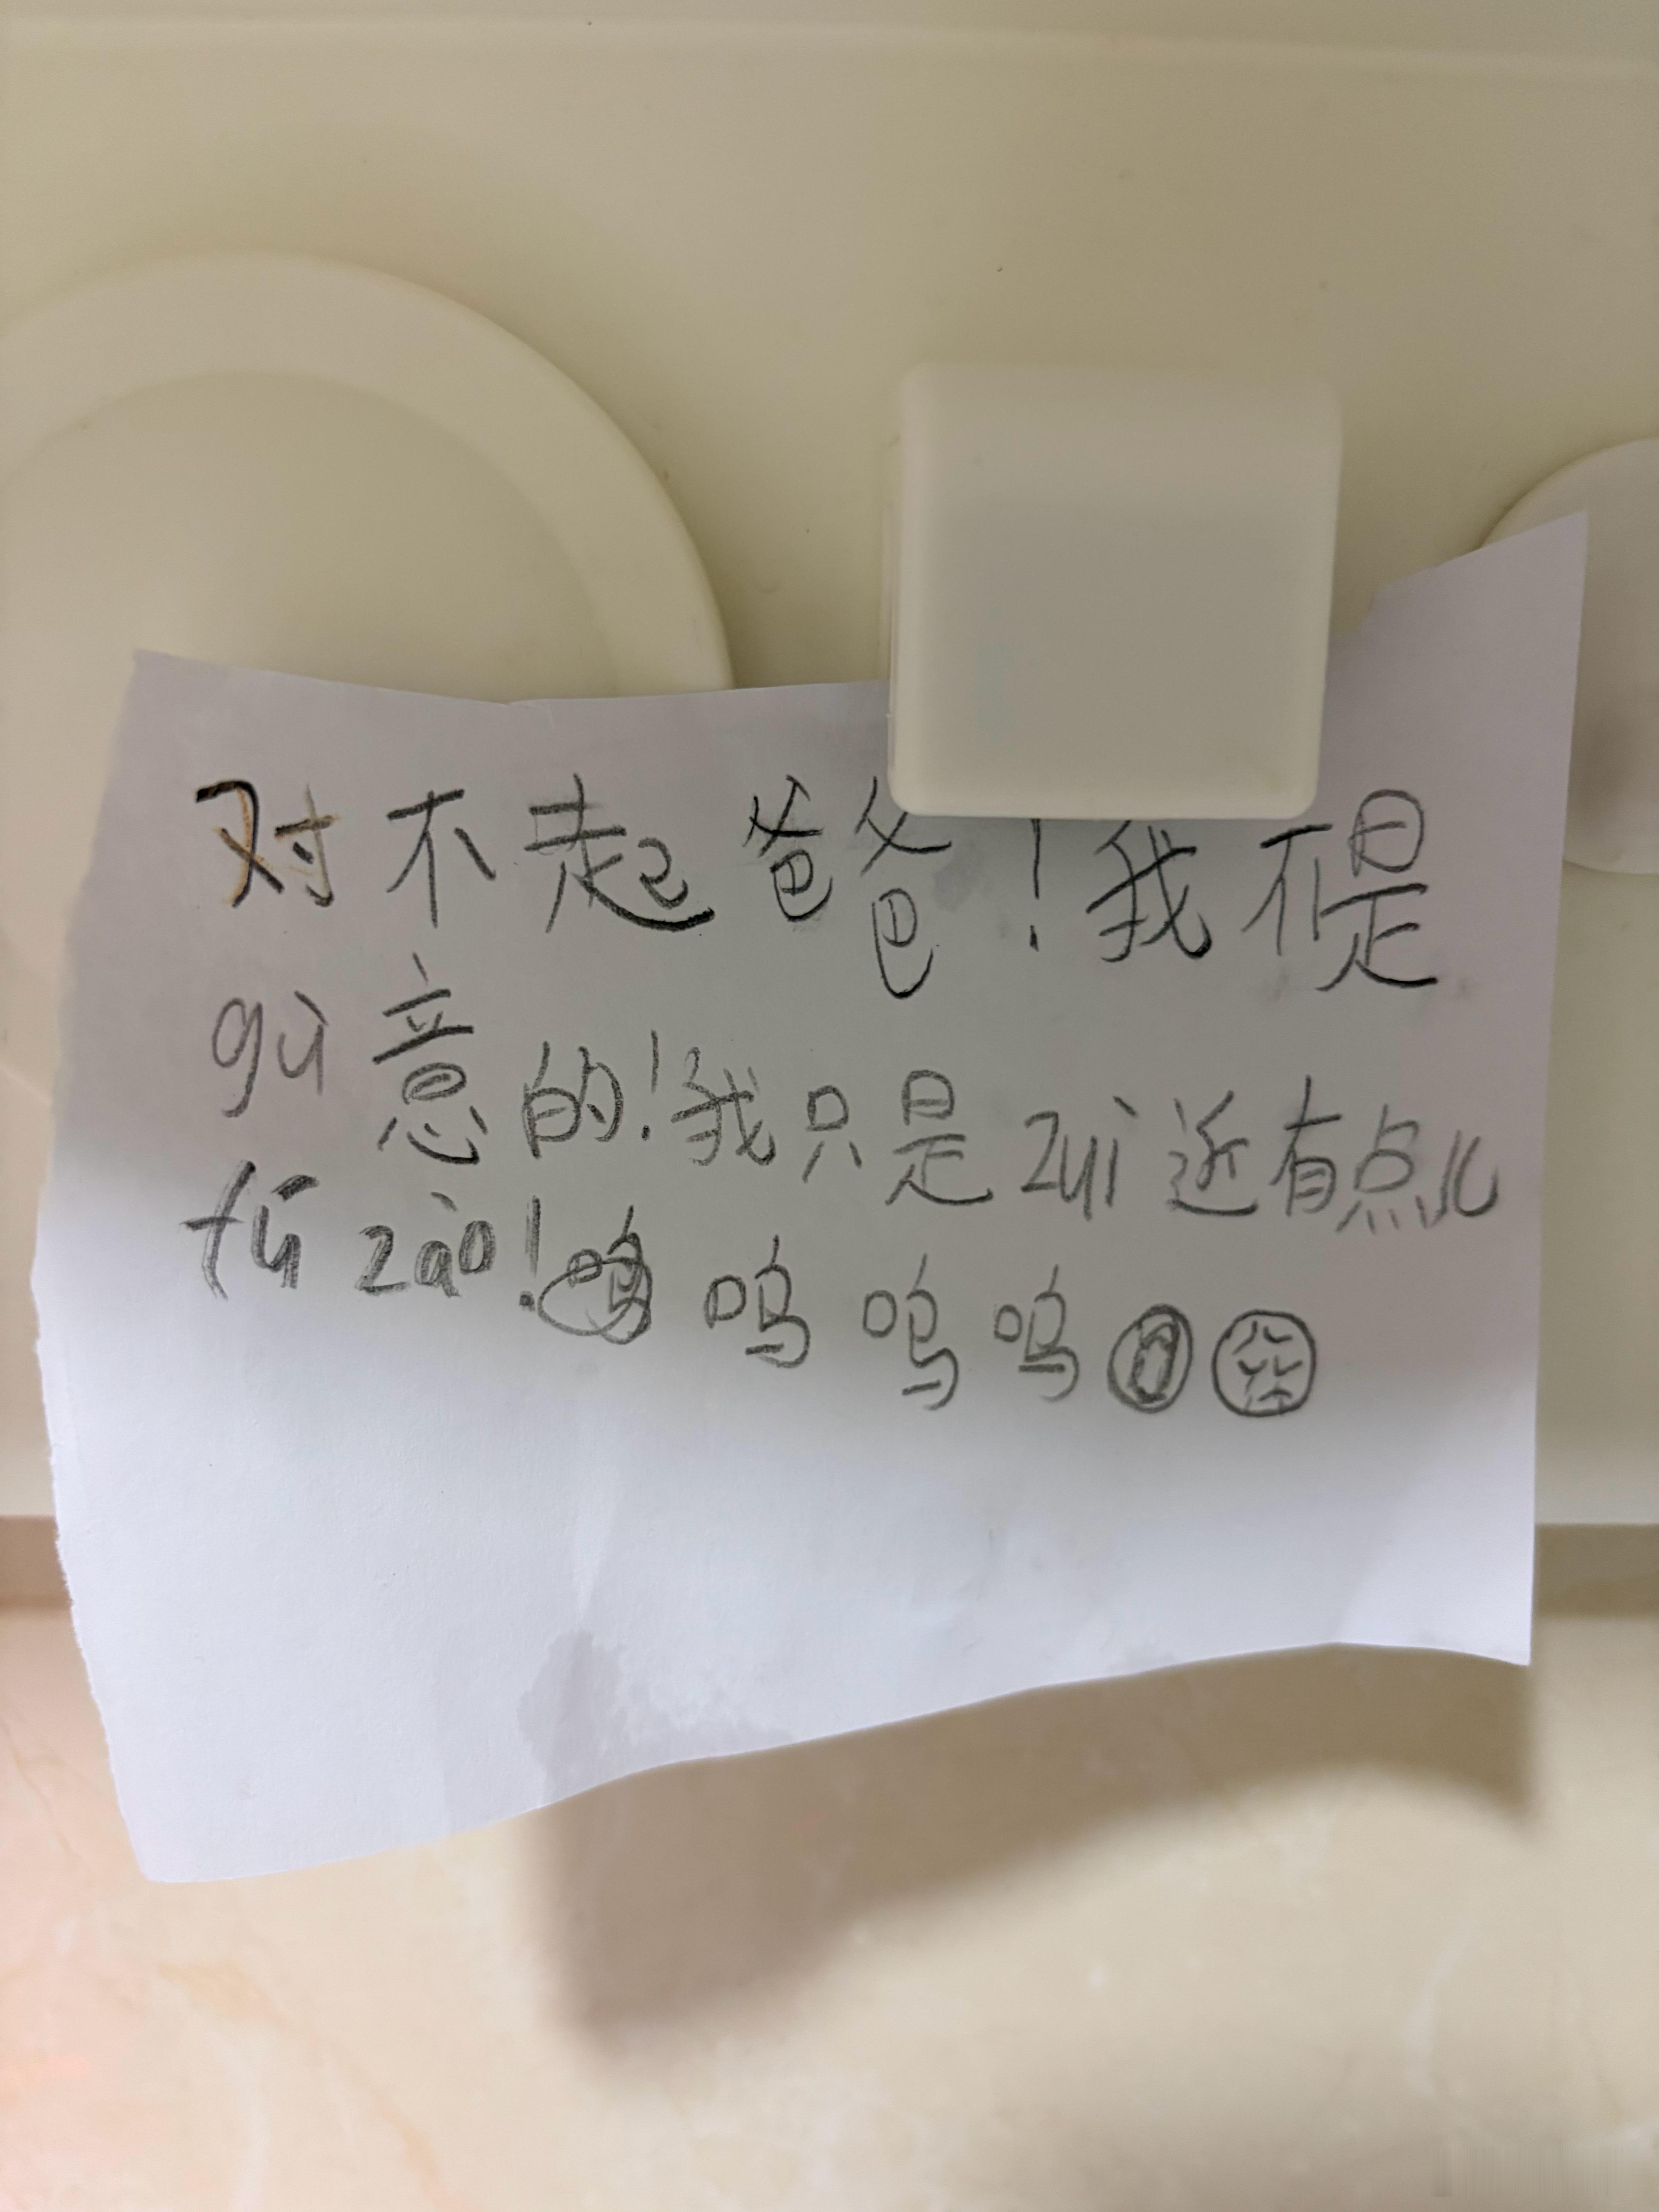 对不起爸爸！我不是
gù意的！我只是zuì近有点儿
fú zào！呜呜呜